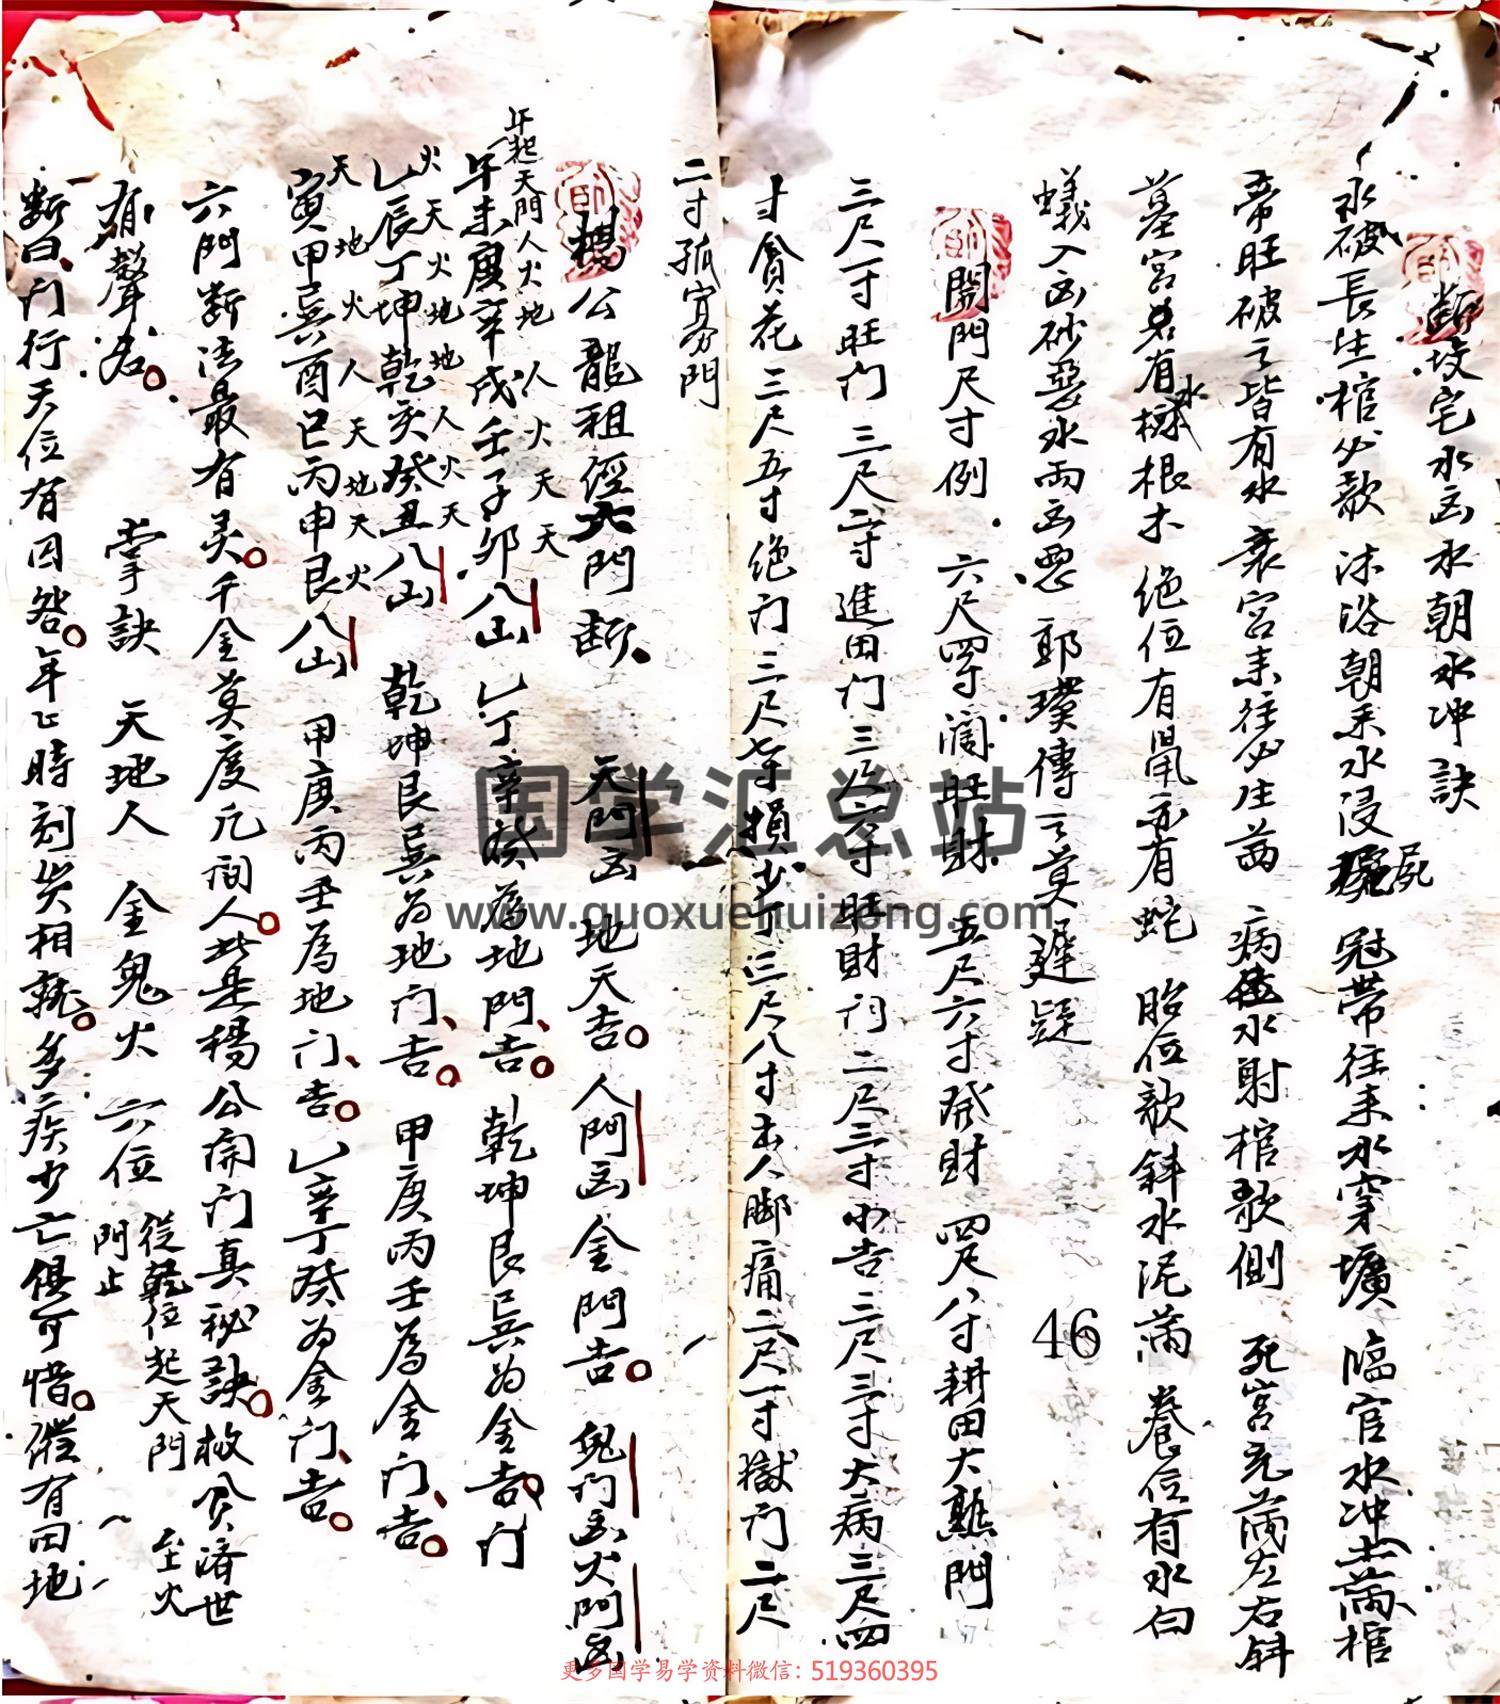 断坟宅水凶水朝水冲訣
水破長生棺必欹 沐浴朝来水浸屍 冠帶往来水穿壙 临官水冲土满棺
帝旺破之皆有水 衰宮来往必生茜 病位水射棺欹側 死宮充满左右斜
墓宮若有水 根木 绝位有鼠亦有蛇 胎位欹斜水泥滿 養位有水白
蟻入凶砂惡水兩凶惡 郭璞傳之莫遲疑
開門尺寸例 六尺四寸阔旺財 五尺六寸發財 四尺八寸耕田大熟門
三尺一寸旺门 三尺二寸進田门 三尺六寸旺財门 二尺三寸小吉 二尺三寸大病 三尺四
寸貪花 三尺五寸绝门 三尺七寸損少丁 三尺八寸出人脚痛 二尺一寸獄门 二尺
二寸孤寡門
楊公龍祖經六門断 天門凶 地天吉 人門凶 金門吉 鬼门凶 火門凶
年起天門人火地 人火天天
午未庚辛戌壬子卯八山 乙丁辛癸為地門吉 乾坤艮巽为金吉门
火天火地地人火天
乙辰丁坤乾亥癸丑八山 乾坤艮巽为地门吉 甲庚丙壬為金门吉
天地火人天地天火
寅甲巽酉巳丙申艮八山 甲庚丙壬為地门吉 乙辛丁癸为金门吉
六門断法最有灵 千金莫度凡间人 此是楊公開门真秘訣 救貧濟世
有聲名 掌訣 天地人 金鬼火 六位 從乾位起天門 至火
門止
断曰 门行天位有因咎 年上時刻災相就 多疾少亡俱可惜 虽有田地
46
国学汇总站
www.guoxuehuizong.com
更多国学易学资料微信: 519360395